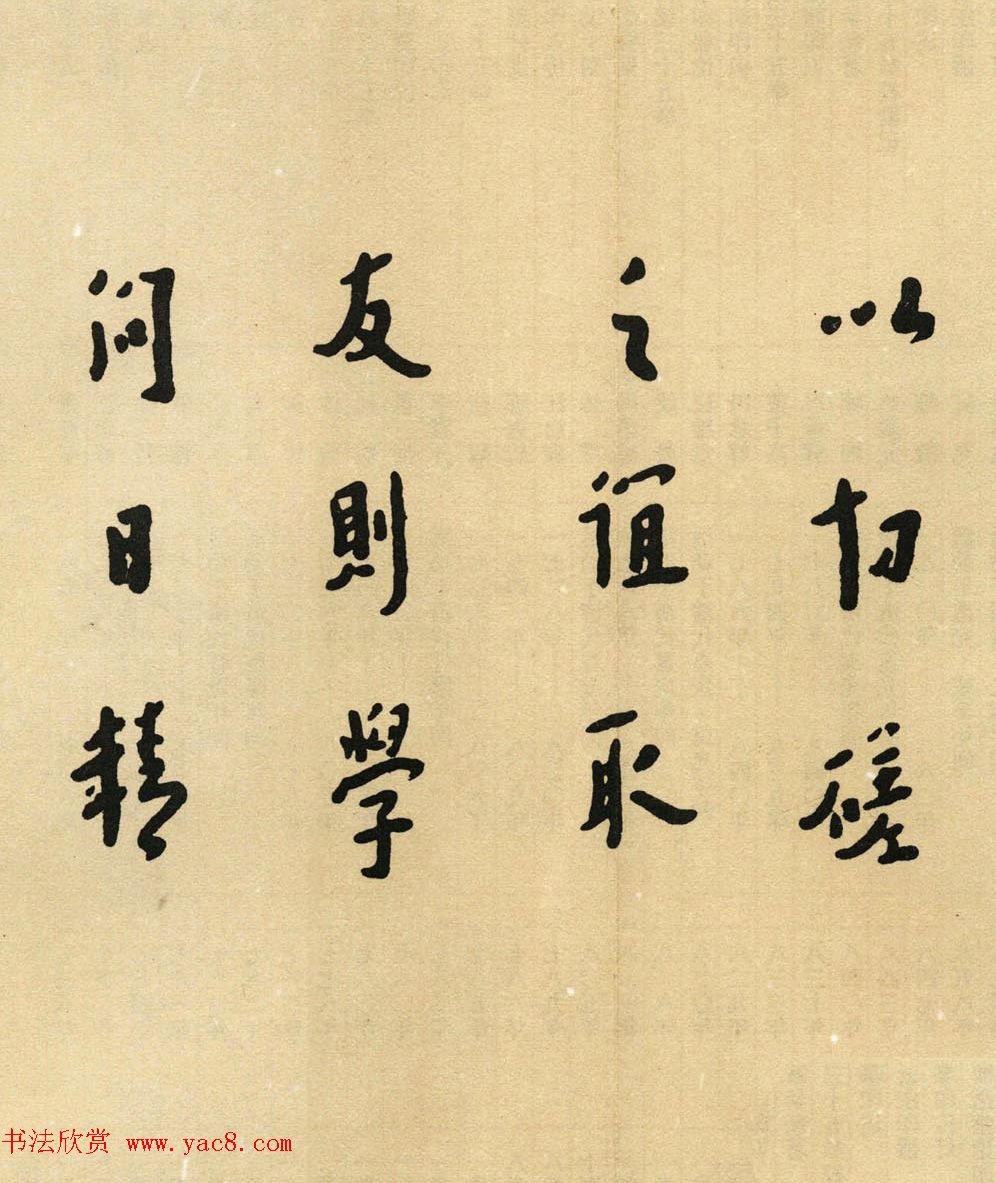 以切磋
之谊取
友則學
问日精
书法欣赏 www.yac8.com